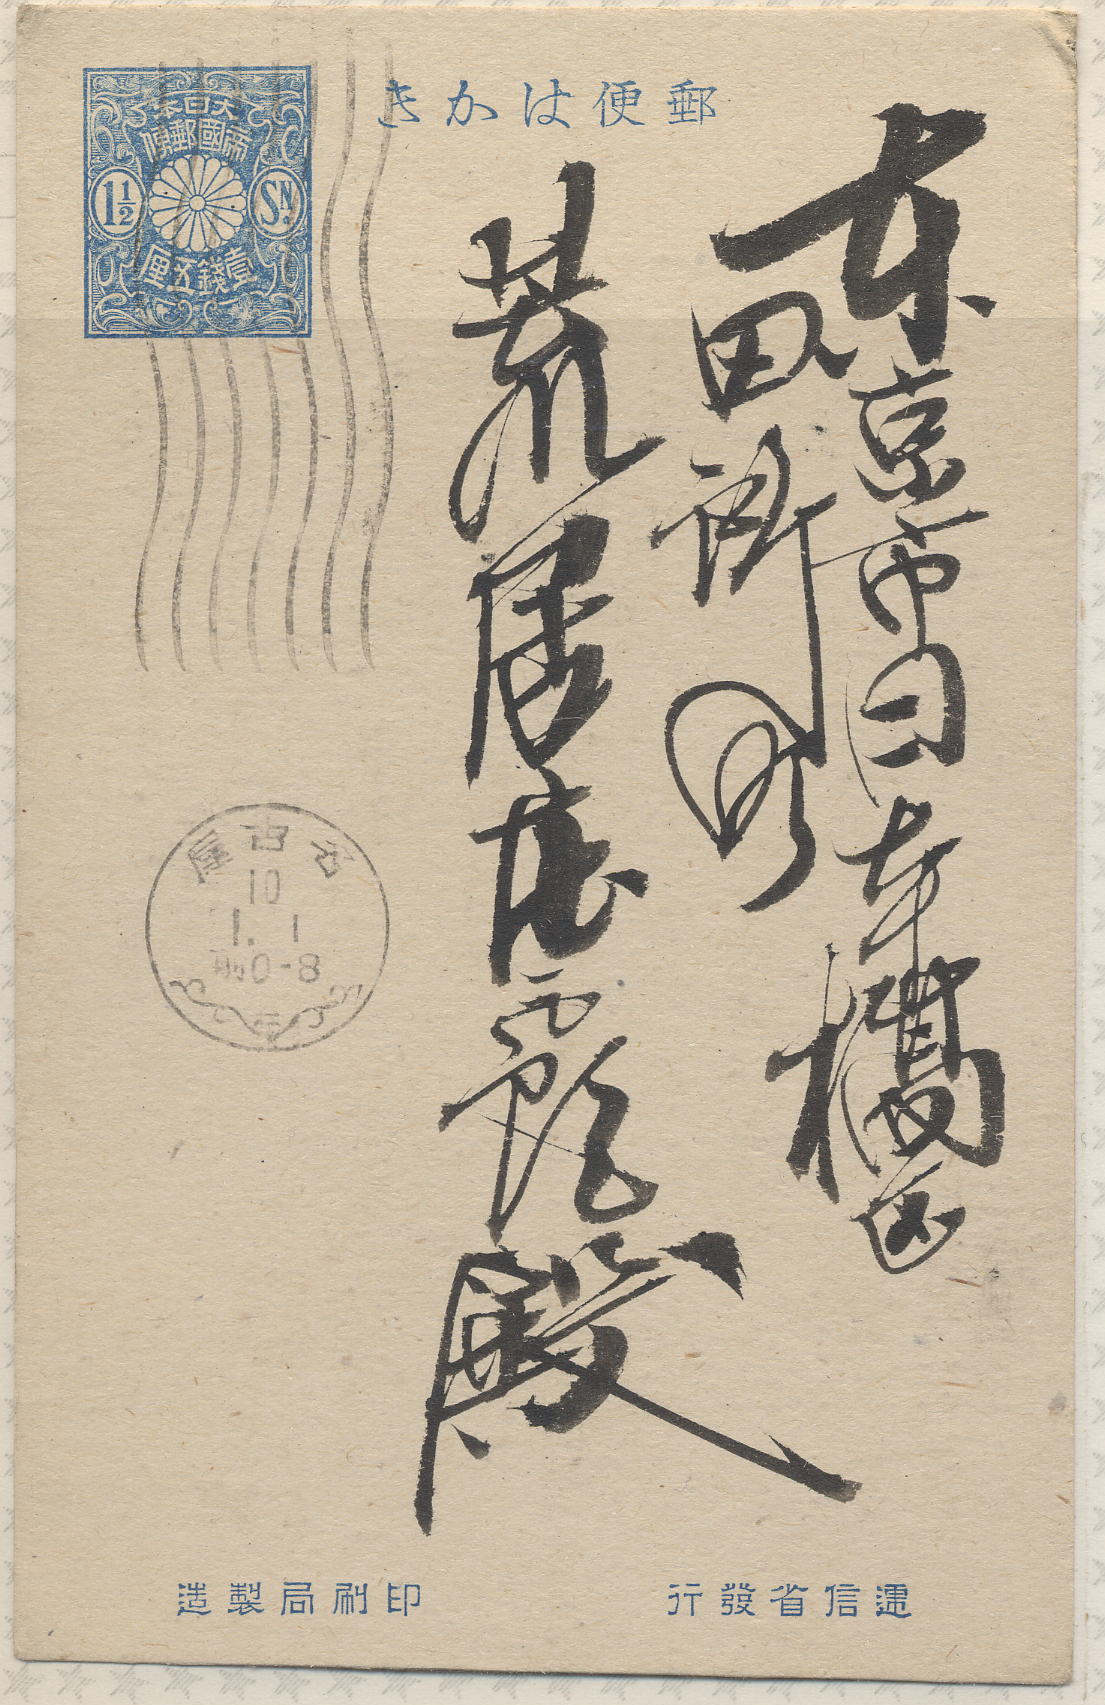 郵便はかき
大日本
帝國郵便
1½ SN.
壹錢五厘
東京市日本橋区
田所町
荒居商店 殿
名古屋
10
1. 1
前0-8
遞信省發行
印刷局製造